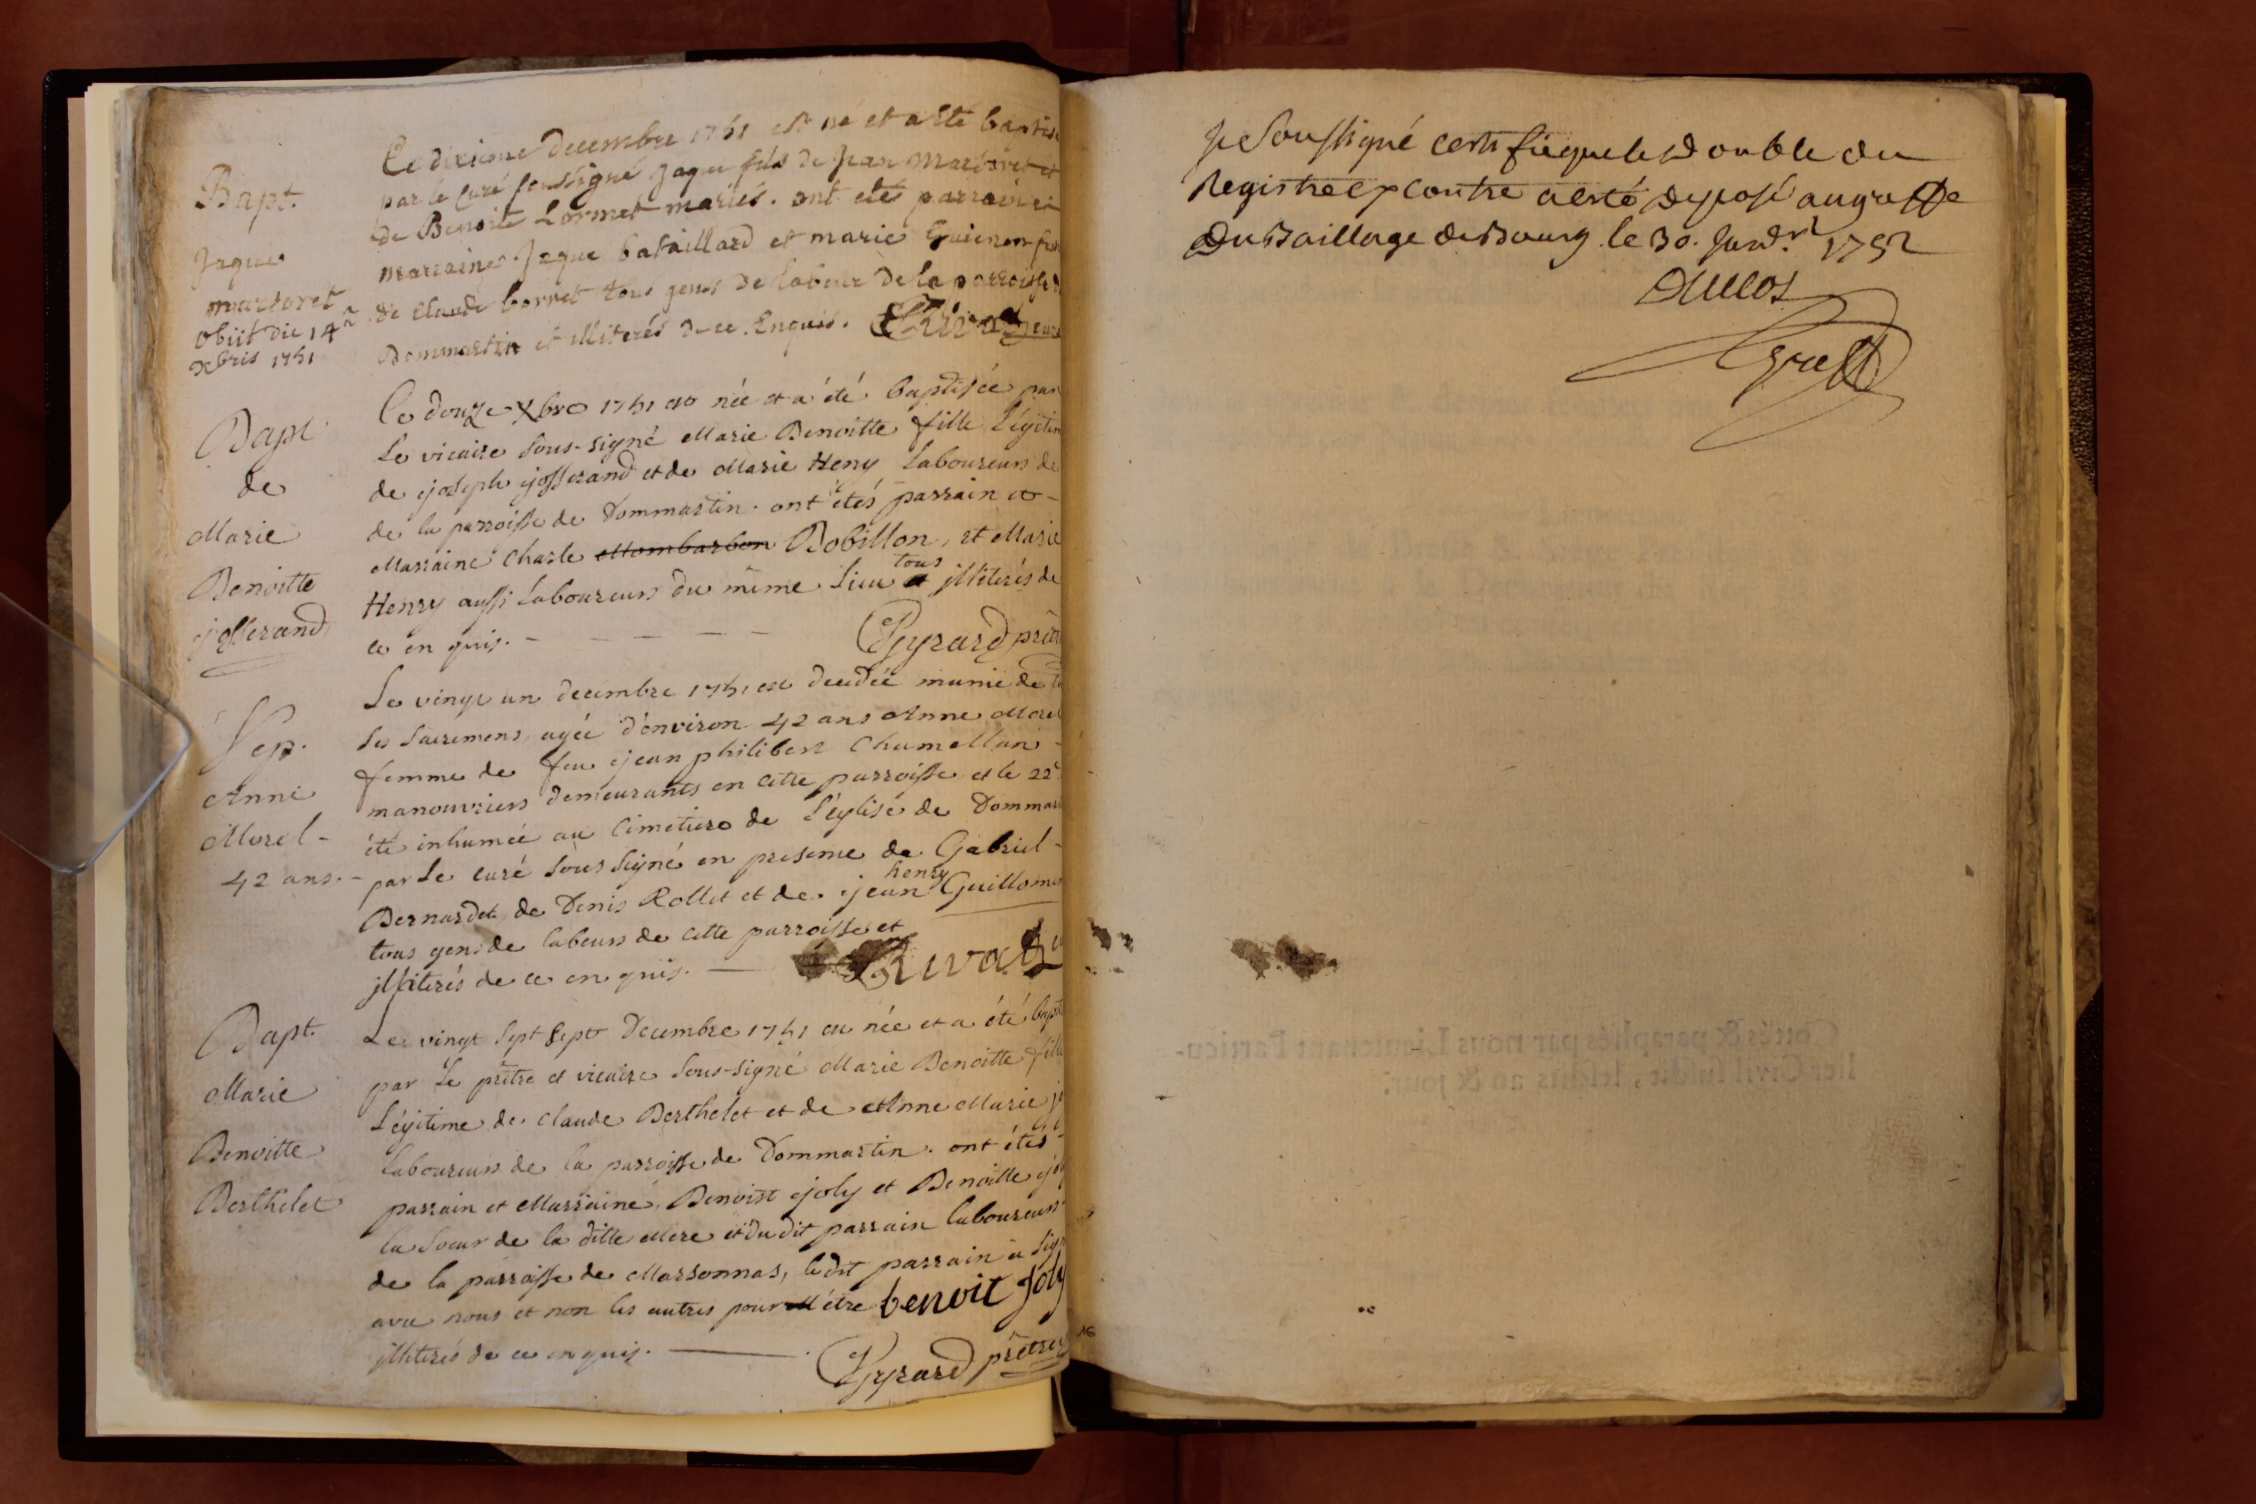 Bapt.
Jaque
marsoret
obiit die 14a
xbris 1751
Le dixieme decembre 1751 est né et a esté baptisé
par le curé soussigné Jaque fils de Jean Marsoret et
de Benoite Lormet mariés. ont etés parrain et
marraine Jaque bataillard et marie
de Claude borret tous gens de labeur de la parroisse de
Dommartin et illiterés de ce Enquis. Rivat curé
Bapt
de
Marie
Benoitte
josserand
Le douze Xbre 1751 est née et a été baptisée par
le vicaire sous-signé Marie Benoitte fille légitim
de joseph josserand et de Marie Heny laboureurs de
de la parroisse de Dommartin. ont étés parrain et
Marraine Charle Mombarbon Bobillon, et Marie
Henry aussi laboureurs du même lieu tous illiterés de
ce en quis. Gyrard prêt
Sep.
Anne
Morel
42 ans.
Le vingt un decembre 1751 est decedée munie de
ses sacremens agée d'environ 42 ans Anne Morel
femme de feu jean philibert Chamellan
manouvriers demeurants en cette parroisse et le 22e
été inhumée au cimetiere de l'église de Dommar
par le curé sous signé en presence de Gabriel
Bernardet, de Denis Rollet et de jean henry Guillomin
tous gens de labeurs de cette parroisse et
illiterés de ce en quis. Rivat cu
Bapt.
Marie
Benoitte
Berthelet
Le vingt sept sept Decembre 1751 est née et a été bapt
par le prêtre et vicaire sous-signé Marie Benoitte fille
légitime de Claude Berthelet et de Anne Marie jo
laboureurs de la parroisse de Dommartin. ont étés
parrain et Marraine, Benoist joly et Benoitte joly
la soeur de la ditte Mere et dudit parrain laboureurs
de la parroisse de Marsonnas, ledit parrain a sign
avec nous et non les autres pour être benoit Joly
illiterés de ce en quis. Gyrard prêtre
Je soussigné certifie que le double du
Registre cy contre a esté deposé au greffe
Du Baillage de Bourg le 30. Janvr. 1752
Duclos
greff
Cottés & paraphés par nous Lieutenant Particu-
lier Civil susdit, lesdits an & jour.